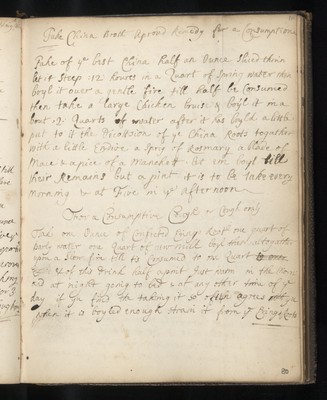 Take China Broth Aprovd Remedy for a Consumption
Take of ye best China half an Ounce Sliced thin
let it Steep 12 houres in a Quart of Spring water then
boyl it over a gentle fire till half be Consumed
then take a large Chicken bruse it & boyl it in a
bout 2 Quarts of water after it has boyld a little
put to it the Decoction of ye China Roots together
with a little Endive a Sprig of Rosmary a blade of
Mace & a pice of a Manchett let em boyl till
their Remains but a pint it is to be take every
Morning & at Five in ye afternoon
For a Consumptive Cough or Cough only
Take one Ounce of Confected Eringo Root one quart of
barly water one Quart of milk boyl them altogether
upon a Slow fire till is Consumed to one Quart
& of this Drink half a pint Just worm in the
and at night going to bed & at any other time of ye
day if you find the taking it so often agree's not
when it is boyled enough strain it from ye Eringo Roots
80